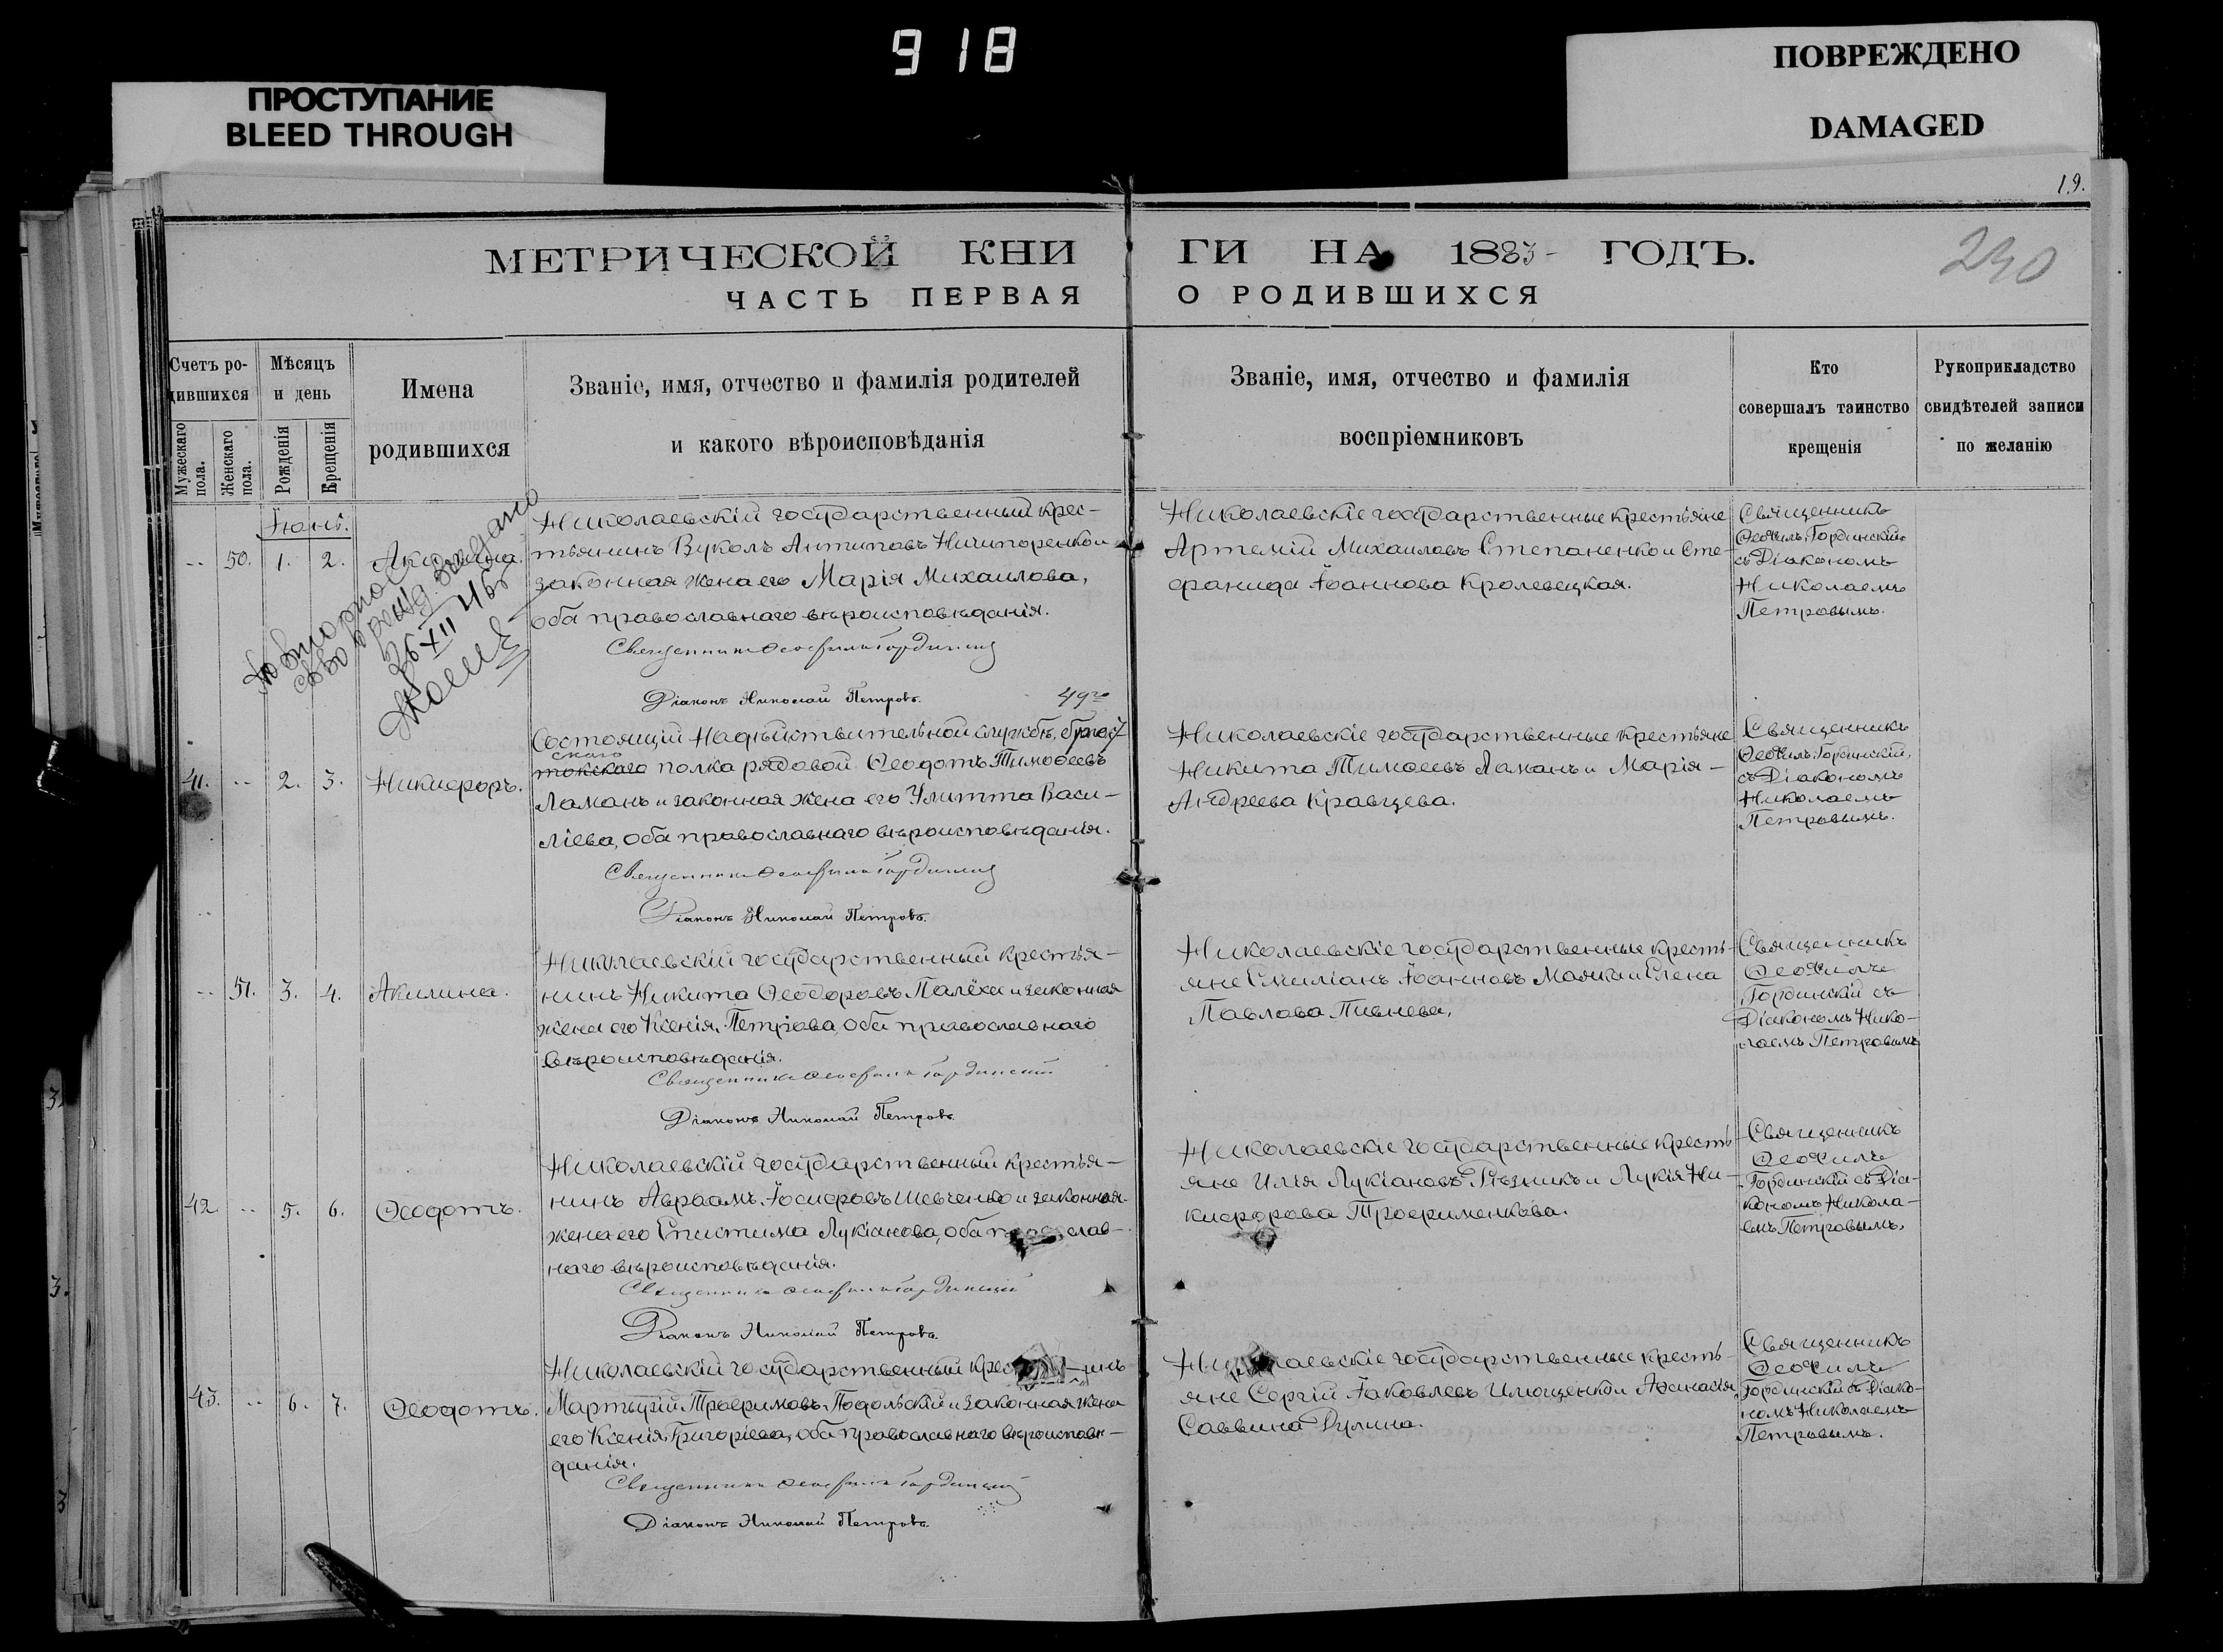 918
ПРОСТУПАНИЕ
BLEED THROUGH
ПОВРЕЖДЕНО
DAMAGED
19.
МЕТРИЧЕСКОЙ КНИГИ НА 1883 ГОДЪ.
230
ЧАСТЬ ПЕРВАЯ О РОДИВШИХСЯ
Счетъ родившихся
Мужескаго пола.
Женскаго пола.
Мѣсяцъ и день
Рожденія
Крещенія
Имена родившихся
Званіе, имя, отчество и фамилія родителей
и какого вѣроисповѣданія
Званіе, имя, отчество и фамилія
воспріемниковъ
Кто
совершалъ таинство
крещенія
Рукоприкладство
свидѣтелей записи
по желанію
Іюнь.
-- 50. 1. 2. Акилина.
Повторное
св-во выдано
26 XII
Николаевскій государственный крес-
тьянинъ Вуколъ Антиповъ Ничипоренко и
законная жена его Марія Михаилова,
оба православнаго вѣроисповѣданія.
Священникъ Ѳеофилъ Гординскій
Діаконъ Николай Петровъ.
Николаевскіе государственные крестьяне
Артемій Михаиловъ Степаненко и Сте-
фанида Іоаннова Кролевецкая.
Священникъ
Ѳеофилъ Гординскій
съ Діакономъ
Николаемъ
Петровымъ.
49го
41. -- 2. 3. Никифоръ.
Состоящій на дѣйствительной службѣ,
скаго
полка рядовой Ѳеодотъ Тимоѳеевъ
Ламанъ и законная жена его Улитта Васи-
ліева, оба православнаго вѣроисповѣданія.
Священникъ Ѳеофилъ Гординскій
Діаконъ Николай Петровъ.
Николаевскіе государственные крестьяне
Никита Тимоѳеевъ Ламанъ и Марія
Андреева Кравцева.
Священникъ
Ѳеофилъ Гординскій,
съ Діакономъ
Николаемъ
Петровымъ.
-- 51. 3. 4. Акилина.
Николаевскій государственный крестья-
нинъ Никита Ѳеодоровъ Палёха и законная
жена его Ксенія Петрова, оба православнаго
вѣроисповѣданія.
Священникъ Ѳеофилъ Гординскій
Діаконъ Николай Петровъ.
Николаевскіе государственные кресть-
яне Емиліанъ Іоанновъ Маяка и Елена
Павлова Пивнева.
Священникъ
Ѳеофилъ
Гординскій съ
Діакономъ Нико-
лаемъ Петровымъ
42. -- 5. 6. Ѳеодотъ.
Николаевскій государственный крестья-
нинъ Авраамъ Іосифовъ Шевченко и законная
жена его Епистима Лукіанова, оба православ-
наго вѣроисповѣданія.
Священникъ Ѳеофилъ Гординскій
Діаконъ Николай Петровъ.
Николаевскіе государственные кресть-
яне Илія Лукіановъ Рѣзникъ и Лукія Ни-
кифорова Трофименкова.
Священникъ
Ѳеофилъ
Гординскій съ Діа-
кономъ Никола-
емъ Петровымъ.
43. -- 6. 7. Ѳеодотъ.
Николаевскій государственный крес
Мартирій Трофимовъ Подольскій и законная жена
его Ксенія Григоріева, оба православнаго вѣроисповѣ-
данія.
Священникъ Ѳеофилъ Гординскій
Діаконъ Николай Петровъ.
Николаевскіе государственные кресть-
яне Сергій Іаковлевъ Имощенко и Аѳанасія
Саввина Дулина.
Священникъ
Ѳеофилъ
Гординскій съ Діако-
номъ Николаемъ
Петровымъ.